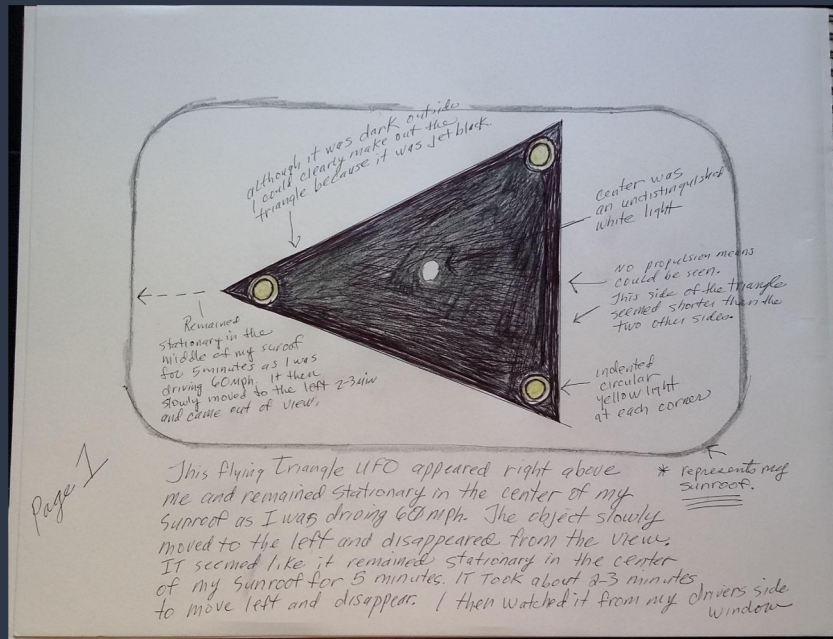 although it was dark outside
I could clearly make out the
triangle because it was jet black
center was
an undistinguished
white light
No propulsion means
could be seen.
This side of the triangle
seemed shorter than the
two other sides.
Remained
stationary in the
middle of my sunroof
for 5 minutes as I was
driving 60mph. It then
slowly moved to the left 2-3min
and came out of view.
indented
circular
yellow light
at each corner
* represents my
sunroof.
Page 1
This flying Triangle UFO appeared right above
me and remained stationary in the center of my
Sunroof as I was driving 60mph. The object slowly
moved to the left and disappeared from the view.
IT seemed like it remained stationary in the center
of my Sunroof for 5 minutes. IT Took about 2-3 minutes
to move left and disappear. I then watched it from my drivers side
window